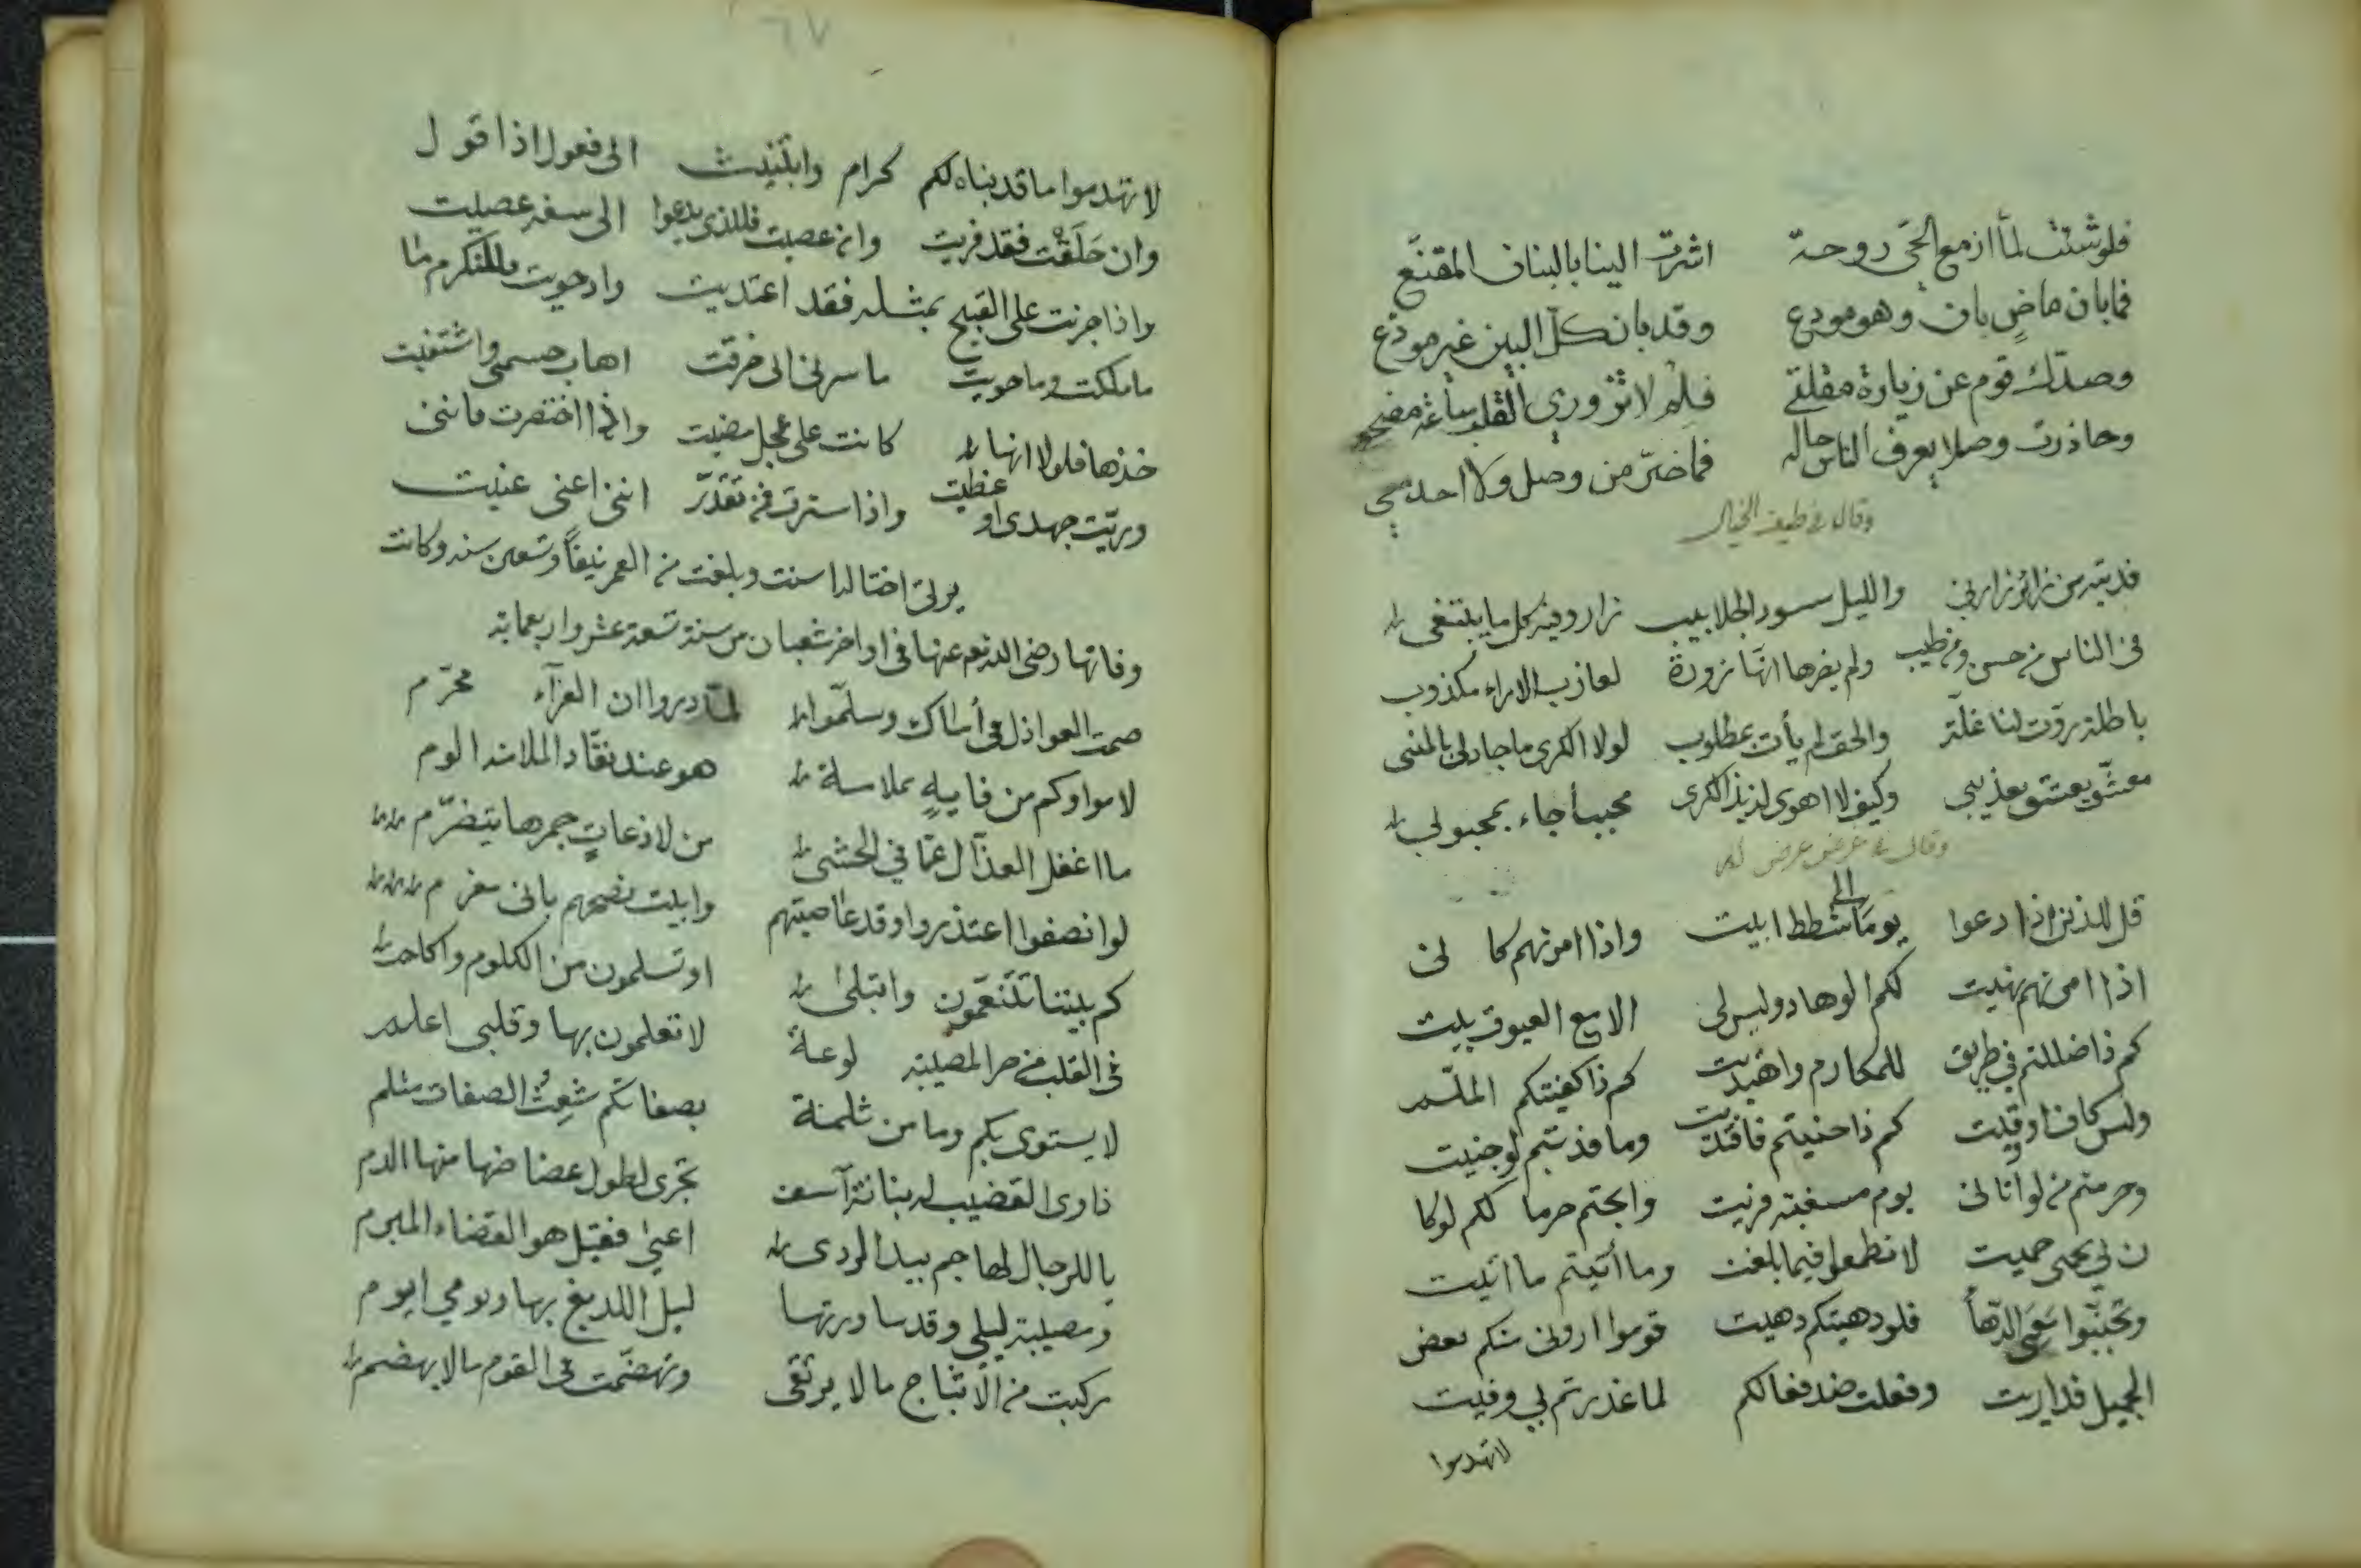 فلو شئت لما ازمع الحي روحة اشرت الينا بالبنان المقنّع
فما بان ماضٍ بان وهو مودع وقد بان كلّ البين غير مودّع
وصدّك قوم عن زيارة مقلتي فلم لا تزوري القلب ساعة مضجعي
وحاذرت وصلا يعرف الناس حاله فما ضرّ من وصل ولا احد معي
وقال في طيف الخيال
فديته من زائر زارني والليل مسود الجلابيب زار وفيه كل ما يبتغى
في الناس من حسن ومن طيب ولم يضرها انّها زورة لعازب الاراء مكذوب
باطلة روّت لنا غلّة والحق لم يأت بمطلوب لولا الكرى ما جاد لي بالمنى
معشّق يعشق تعذيبي وكيف لا اهوى لذيذ الكرى محببا جاء بمحبوبي
وقال في غرض عرض له
قل للذين اذا دعوا يوما الى شطط ابيت واذا امرتهم كا نني
اذا امرتهم نهيت لكم الوهاد وليس لي الا مع العيوق بيت
كم ذا ضللتم في طريق للمكارم واهتديت كم ذا كفيتكم الملم
وليس كاف او وقيت كم ذا جنيتم فافتديت وما فديتم لو جنيت
وحرمتم من لو اتاني يوم مسغبة قريت وابحتم حرما لكم لو كا
ن لي يحمى حميت لا تطمعوا فيما بلغت وما أتيتم ما اتيت
وتجنّبوا سَعَى الدّها فلو دهيتكم دهيت قوموا اروني منكم بعض
الجميل فقد اريت وفعلت ضد فعالكم لما غدرتم بي وفيت
لا تهدموا
٦٧
لا تهدموا ما قد بناه لكم كرام وابتنيت انى فعول اذا قول
وان خَلَقْتُ فقد فريت وان عصيت فللذي يدعوا الى سفه عصيت
واذا جزيت على القبيح بمثله فقد اعتديت واذ حويت فللتكرم ما
ما ملكت وما حويت ما سرني انى خرقت اهاب جسمي واشتفيت
خذها فلولا انها كانت على عجل مضيت واذا اختصرت فانني
وريّت جهدي او غطيت واذا سترت فمن تقدّر انني اعني عنيت
يرثي اختا له اسنت وبلغت من العمر نيفاً وتسعين سنه وكانت
وفاتها رضي الله تعم عنها في اواخر شعبان من سنة تسعة عشر واربعمايه
صمت العواذل في أساك وسلّموا لمّا دروا ان العزآء محرّم
لاموا وكم من فايهٍ بملامة هو عند نقّاد الملامة الوم
ما اغفل العذّال عمّا في الحشى من لاذعاتٍ جمرها يتضرّم
لو انصفوا اعتذروا وقد عاصيتهم وابيت نصحهم بانى مغرم
كم بيننا تتنعّمون وابتلى او تسلمون من الكلوم واكلم
في القلب من حر المصيبة لوعةً لا تعلمون بها وقلبي اعلم
لا يستوى بكم وما من ثلمة بصفاتكم شَعِثُ الصفات مثلم
ذاوى القضيب له بنانة آسف تجرى لطول عضاضها منها الدم
يا للرجال لهاجم بيد الردى اعيى فقيل هو القضاء المبرم
ومصيبة ليلى وقد ساورتها ليل اللديغ بها ويومي ايوم
ركبت من الأثباج ما لا يرتقى وتهضّمت في القوم ما لا يهضم